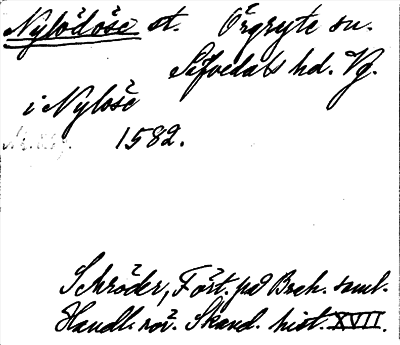 Nylödöse st. Örgryte sn.
Säfvedals hd. Vg.
i Nylöse
1582.
Schröder, Fört. på Berch. saml.
Handl. rör. Skand. hist. XVII.